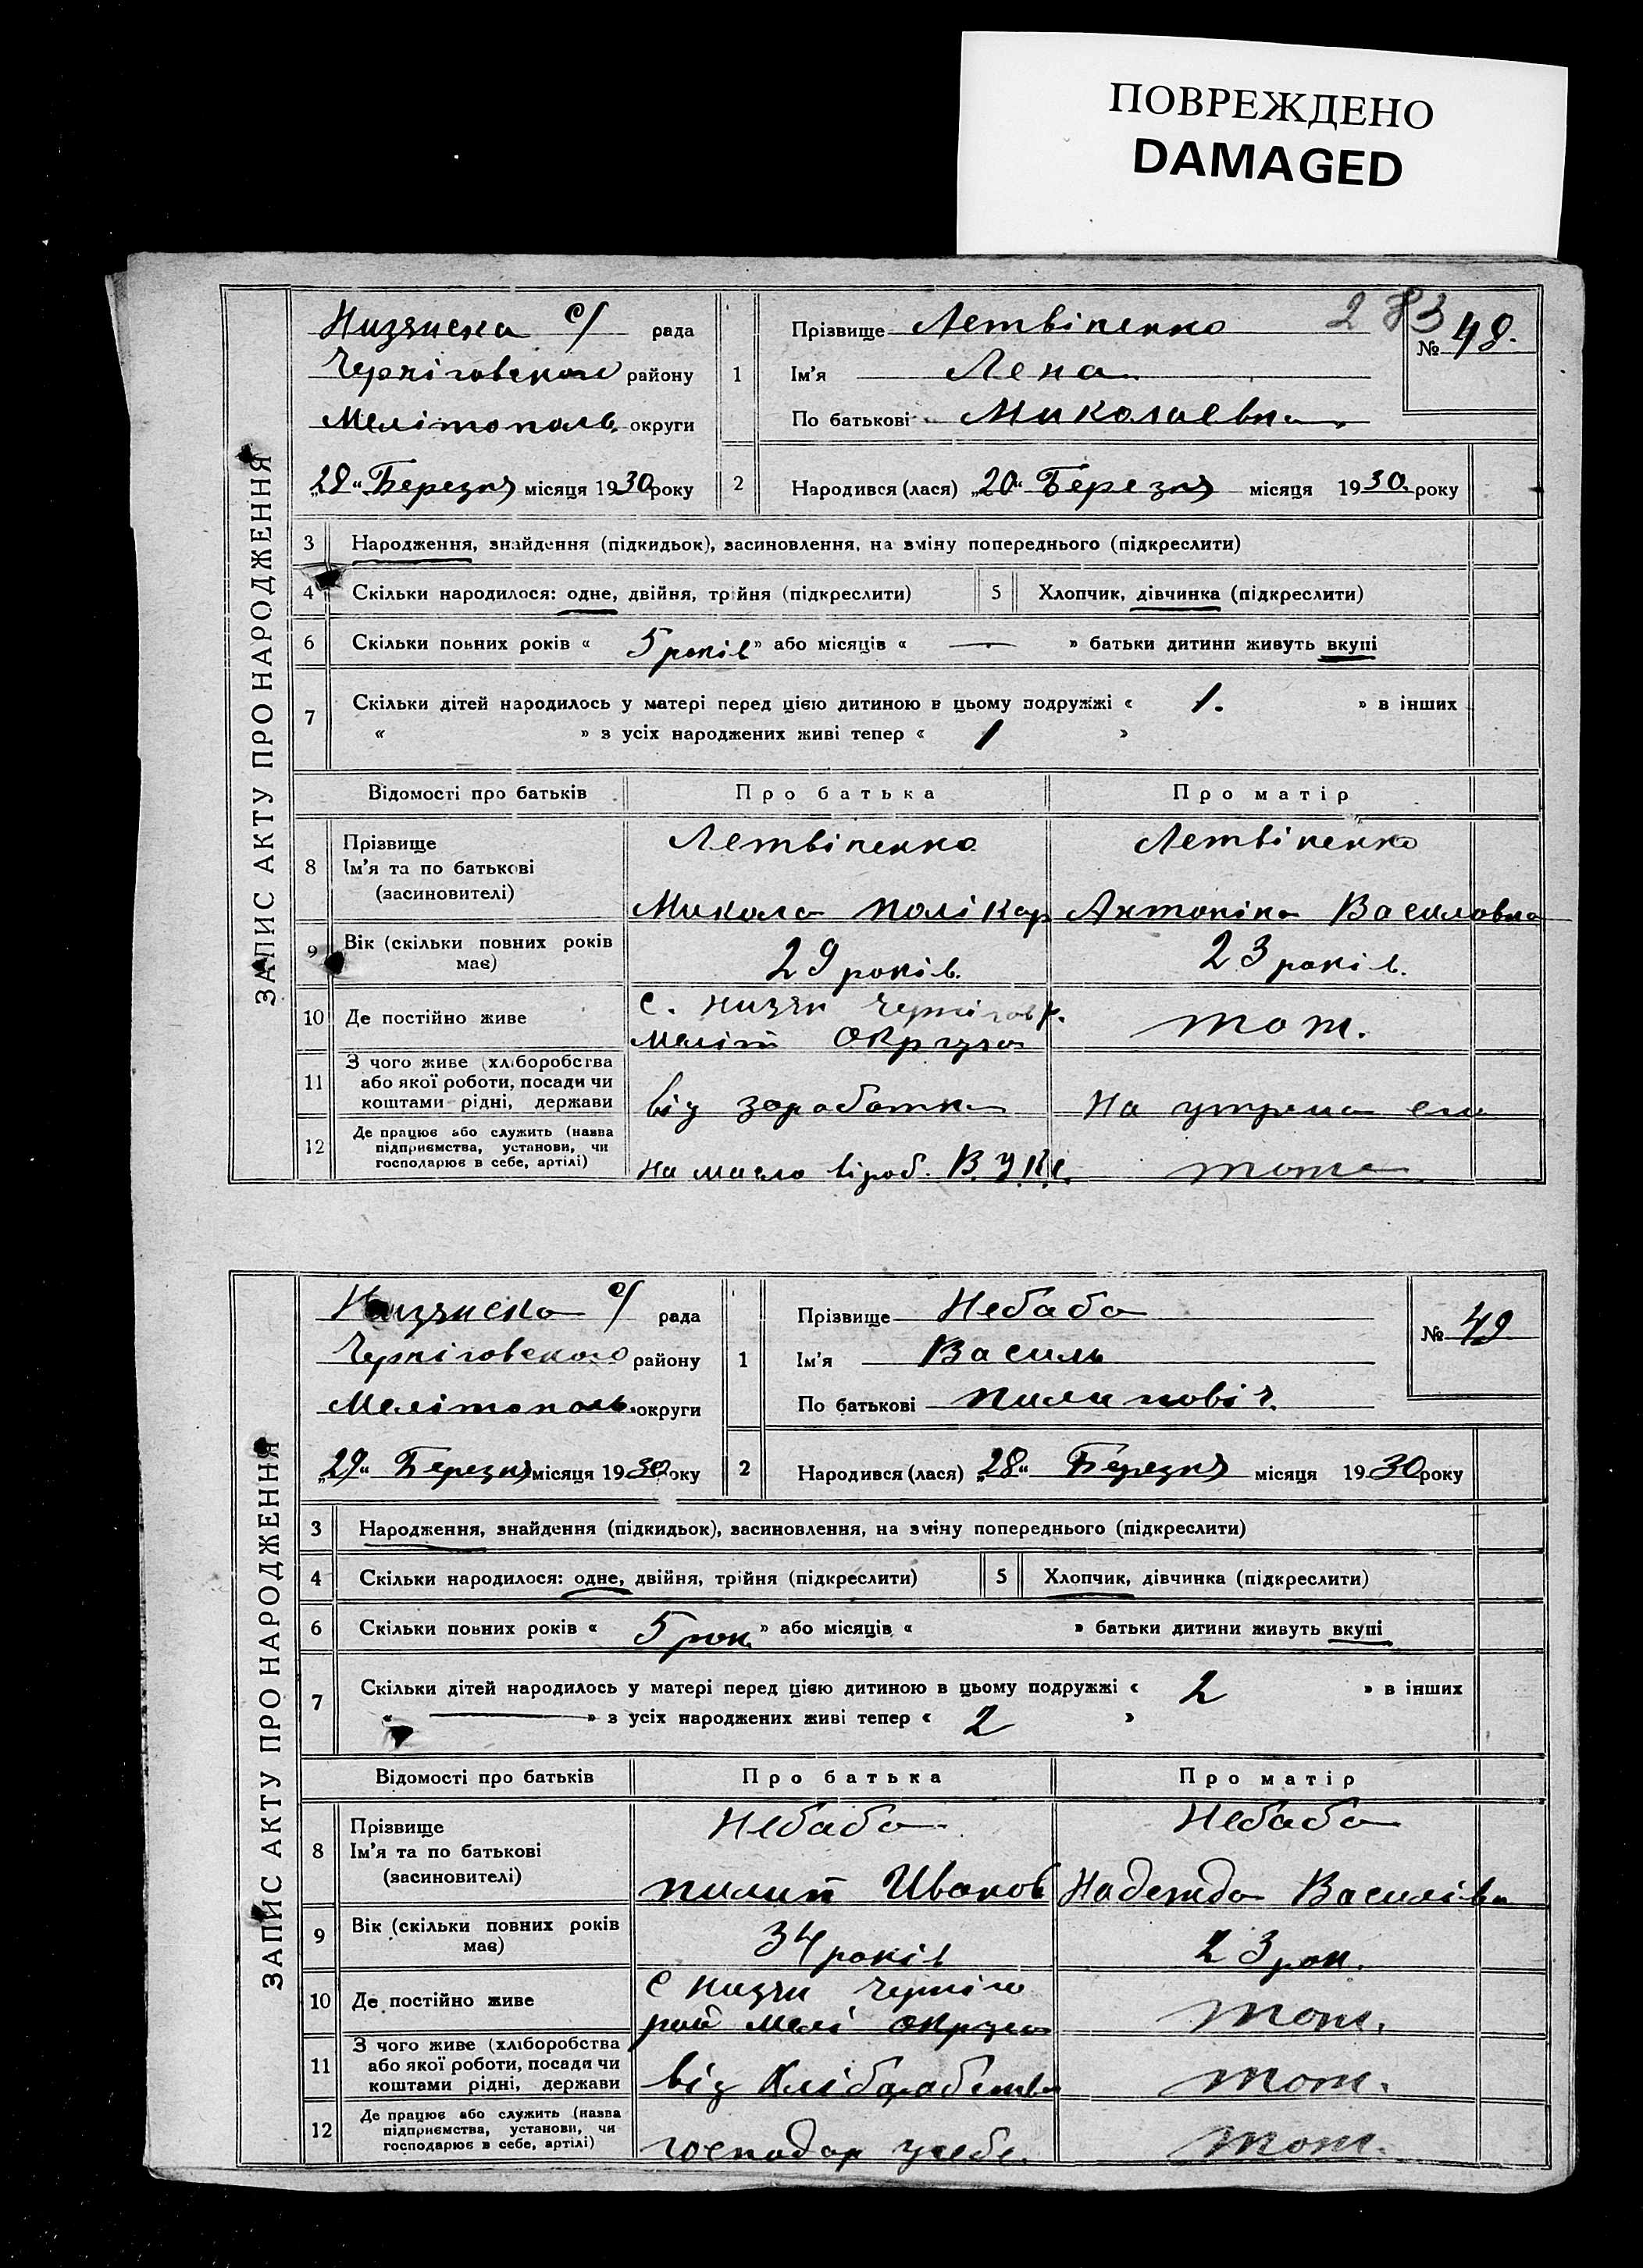 ПОВРЕЖДЕНО
DAMAGED
283
ЗАПИС АКТУ ПРО НАРОДЖЕННЯ
Низянска с/ рада
Чернiговского району
Мелiтополь. округи
„28“ Березня місяця 1930 року
1
Прізвище Летвiненко
Ім'я Лена
По батькові Миколаевна
№ 48.
2
Народився (лася) „20“ Березня місяця 1930. року
3 Народження, знайдення (підкидьок), засиновлення, на зміну попереднього (підкреслити)
4 Скільки народилося: одне, двійня, трійня (підкреслити) 5 Хлопчик, дівчинка (підкреслити)
6 Скільки повних років « 5 рокiв » або місяців « — » батьки дитини живуть вкупі
7 Скільки дітей народилось у матері перед цією дитиною в цьому подружжі « 1. » в інших
« » з усіх народжених живі тепер « 1 »
Відомості про батьків Про батька Про матір
8 Прізвище Летвiненко Летвiненко
Ім'я та по батькові
(засиновителі) Микола Полiкар Антонiна Василовна
9 Вік (скільки повних років має) 29 рокiв. 23 рокiв.
10 Де постійно живе с. Низян Чернiгов р. тож.
Мелiт Округа
11 З чого живе (хліборобства
або якої роботи, посади чи
коштами рідні, держави вiд заработка На утрема
12 Де працює або служить (назва
підприємства, установи, чи
господарює в себе, артілі) на масло вiроб. тоже
ЗАПИС АКТУ ПРО НАРОДЖЕННЯ
Низянска с/ рада
Чернiговского району
Мелiтополь. округи
„29“ Березня місяця 1930 року
1
Прізвище Небаба
Ім'я Василь
По батькові Пилиповiч.
№ 49
2
Народився (лася) „28“ Березня місяця 1930 року
3 Народження, знайдення (підкидьок), засиновлення, на зміну попереднього (підкреслити)
4 Скільки народилося: одне, двійня, трійня (підкреслити) 5 Хлопчик, дівчинка (підкреслити)
6 Скільки повних років « 5 рок. » або місяців « » батьки дитини живуть вкупі
7 Скільки дітей народилось у матері перед цією дитиною в цьому подружжі « 2 » в інших
« — » з усіх народжених живі тепер « 2 »
Відомості про батьків Про батька Про матір
8 Прізвище Небаба Небаба
Ім'я та по батькові
(засиновителі) Пилип Иванов Надежда Василiвн
9 Вік (скільки повних років має) 34 рокiв 23 рок.
10 Де постійно живе с Низян Чернiго тож.
рай Мелi округа
11 З чого живе (хліборобства
або якої роботи, посади чи
коштами рідні, держави вiд Хлiборобства тож.
12 Де працює або служить (назва
підприємства, установи, чи
господарює в себе, артілі) господар усебе. тож.